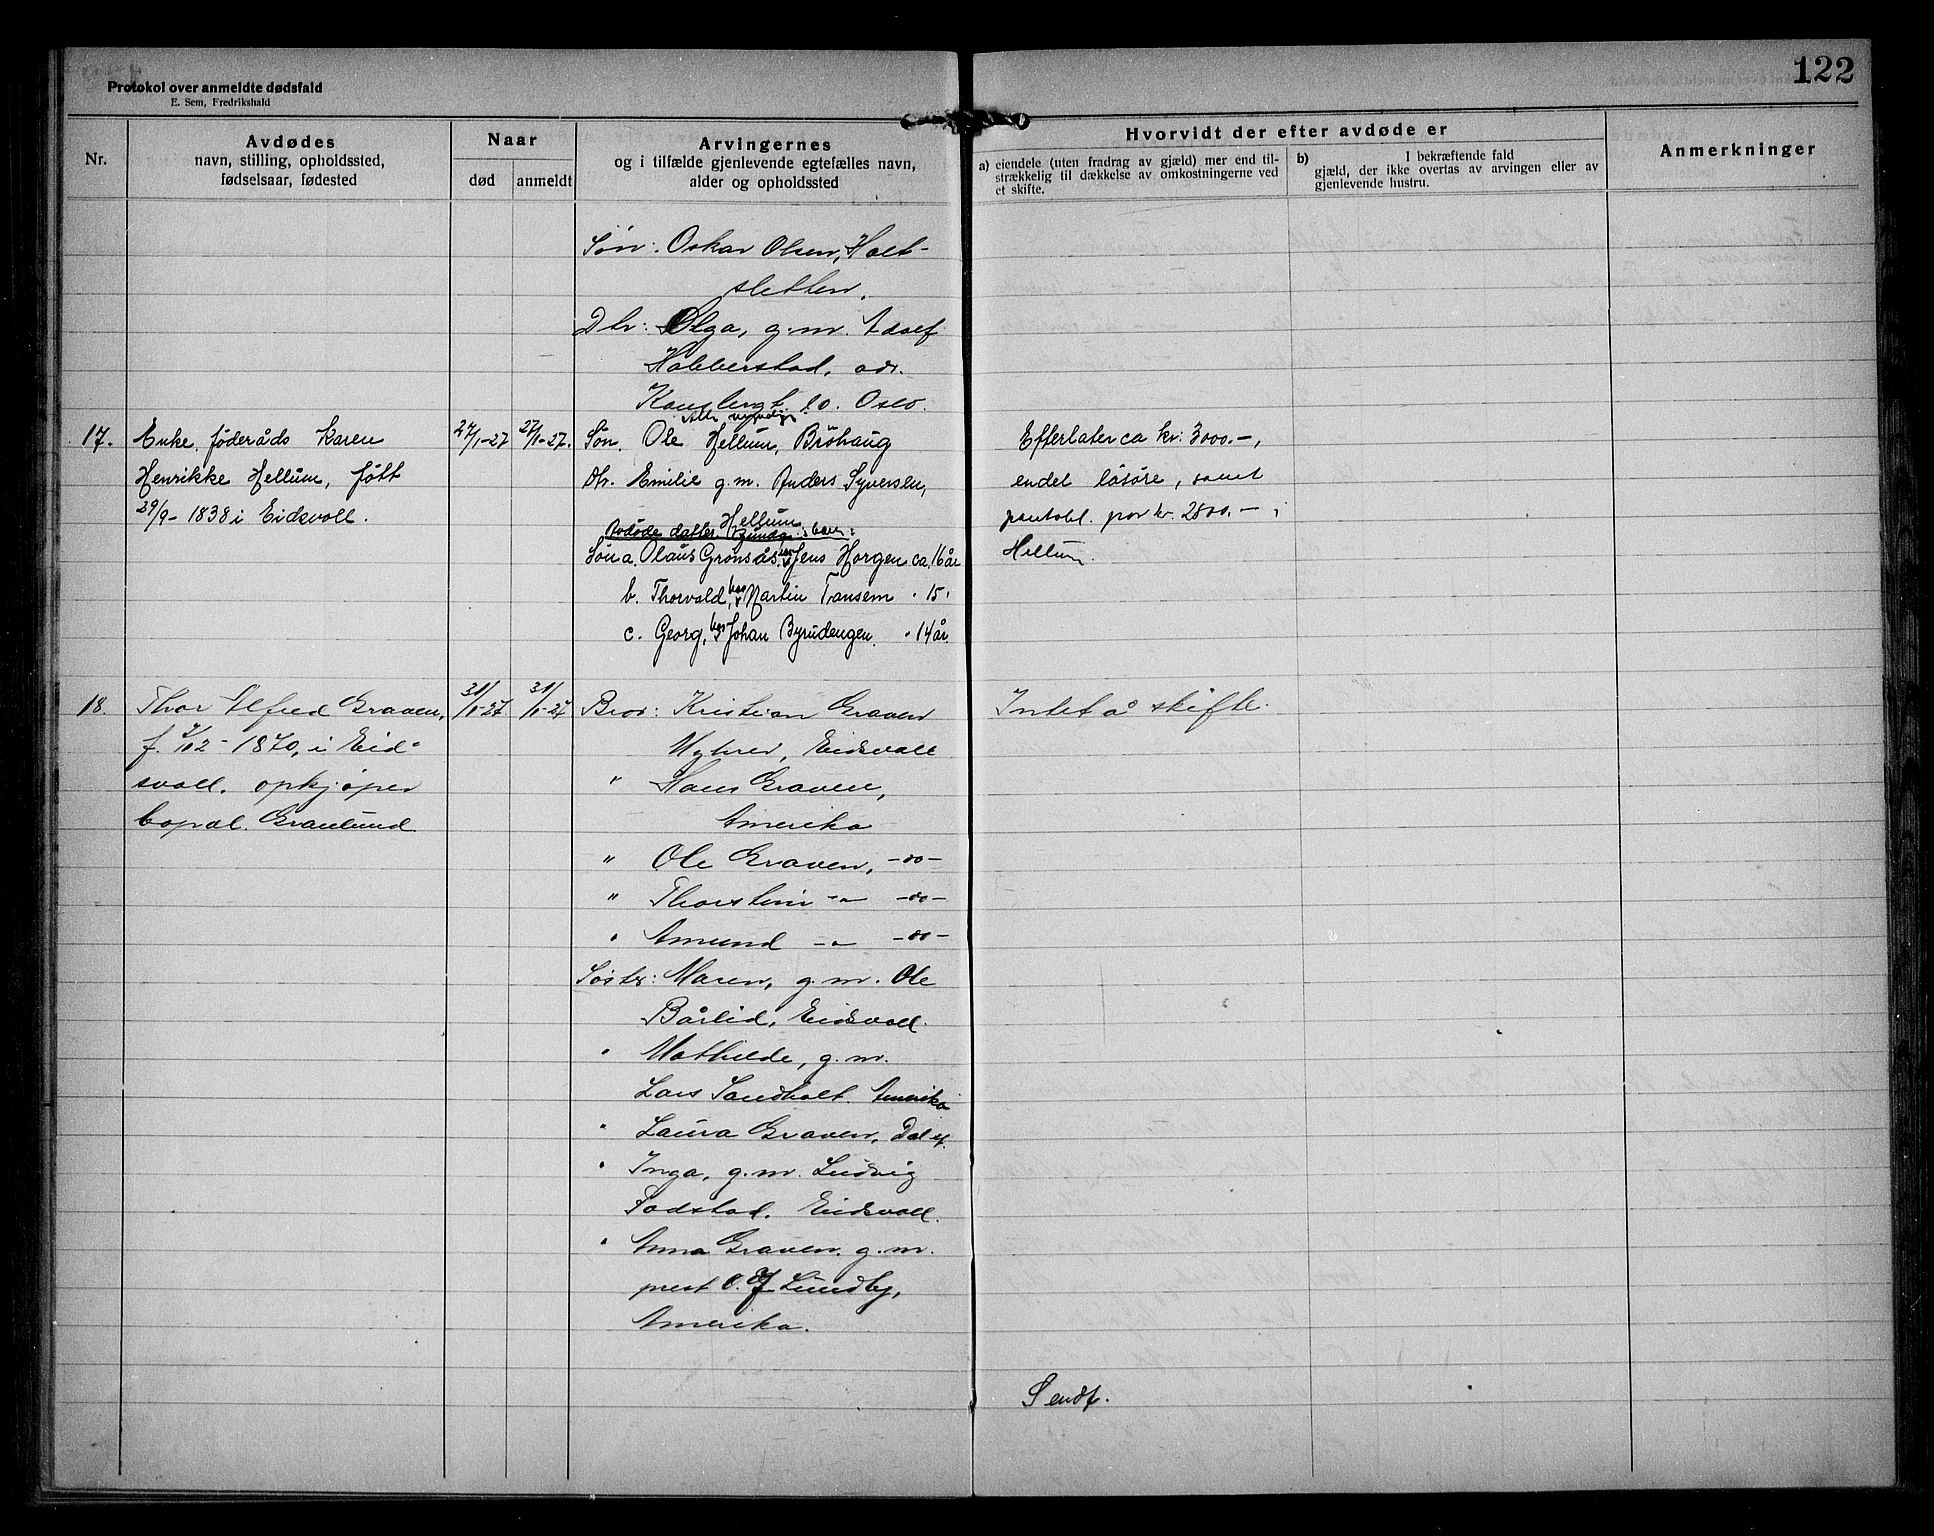 122
Protokol over anmeldte dødsfald
E. Sem, Fredrikshald
Nr.
Avdødes
navn, stilling, opholdssted,
fødselsaar, fødested
Naar
død
anmeldt
Arvingernes
og i tilfælde gjenlevende egtefælles navn,
alder og opholdssted
Hvorvidt der efter avdøde er
a) eiendele (uten fradrag av gjæld) mer end til-
strækkelig til dækkelse av omkostningerne ved
et skifte.
b) I bekræftende fald
gjæld, der ikke overtas av arvingen eller av
gjenlevende hustru.
Anmerkninger
Søn: Oskar Olsen, Holt-
sletten.
Dtr: Olga, g.m. Adolf
Habberstad, adr.
10. Oslo.
Alle myndige
17.
Enke, føderåds Karen
Henrikke Hellum, født
29/9- 1838 i Eidsvoll.
27/1-27
27/1-27.
Søn. Ole Hellum, Brøhaug
Dtr. Emilie g.m. Anders Syversen,
Hellum
Avdøde datter barn:
Søn a. Olaus Grønsås, hos Jens Horgen ca. 16 år
b. Thorvald, hos Martin Tansem " 15 "
c. Georg, hos Johan Byrudengen. " 14 år
Efterlater ca kr: 3000.-,
endel løsøre, samt
pantobl. por kr. 2800.- i
Hellum.
18.
Thor Alfred Graven,
f. 1870, i Eid-
svoll. opkjøper
bopæl. Granlund
31/1-27
31/1-27
Bror: Kristian Graven
Myhrer, Eidsvoll
" Hans Graven,
Amerika
" Ole Graven, -do-
" Thorstein -"- -do-
" Amund -"- -do-
Søster: Maren, g.m. Ole
Bårlid, Eidsvoll.
" Mathilde, g.m.
Lars Sandholt. Amerika
" Laura Graven, Dal st.
" Inga, g.m. Ludvig
Fodstad. Eidsvoll.
" Anna Graven. g.m.
prest O. J. Lundby,
Amerika.
Intet å skifte.
Sendt.